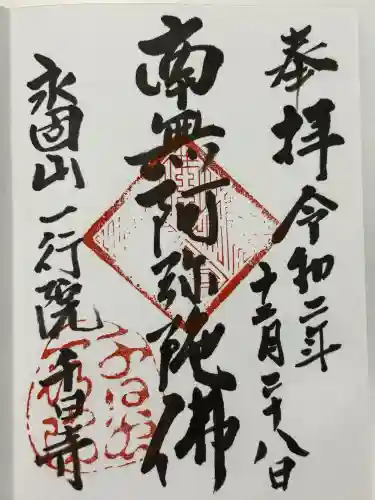 奉拝 令和二年十二月二十八日
南無阿弥陀佛
永固山 一行院 千日寺